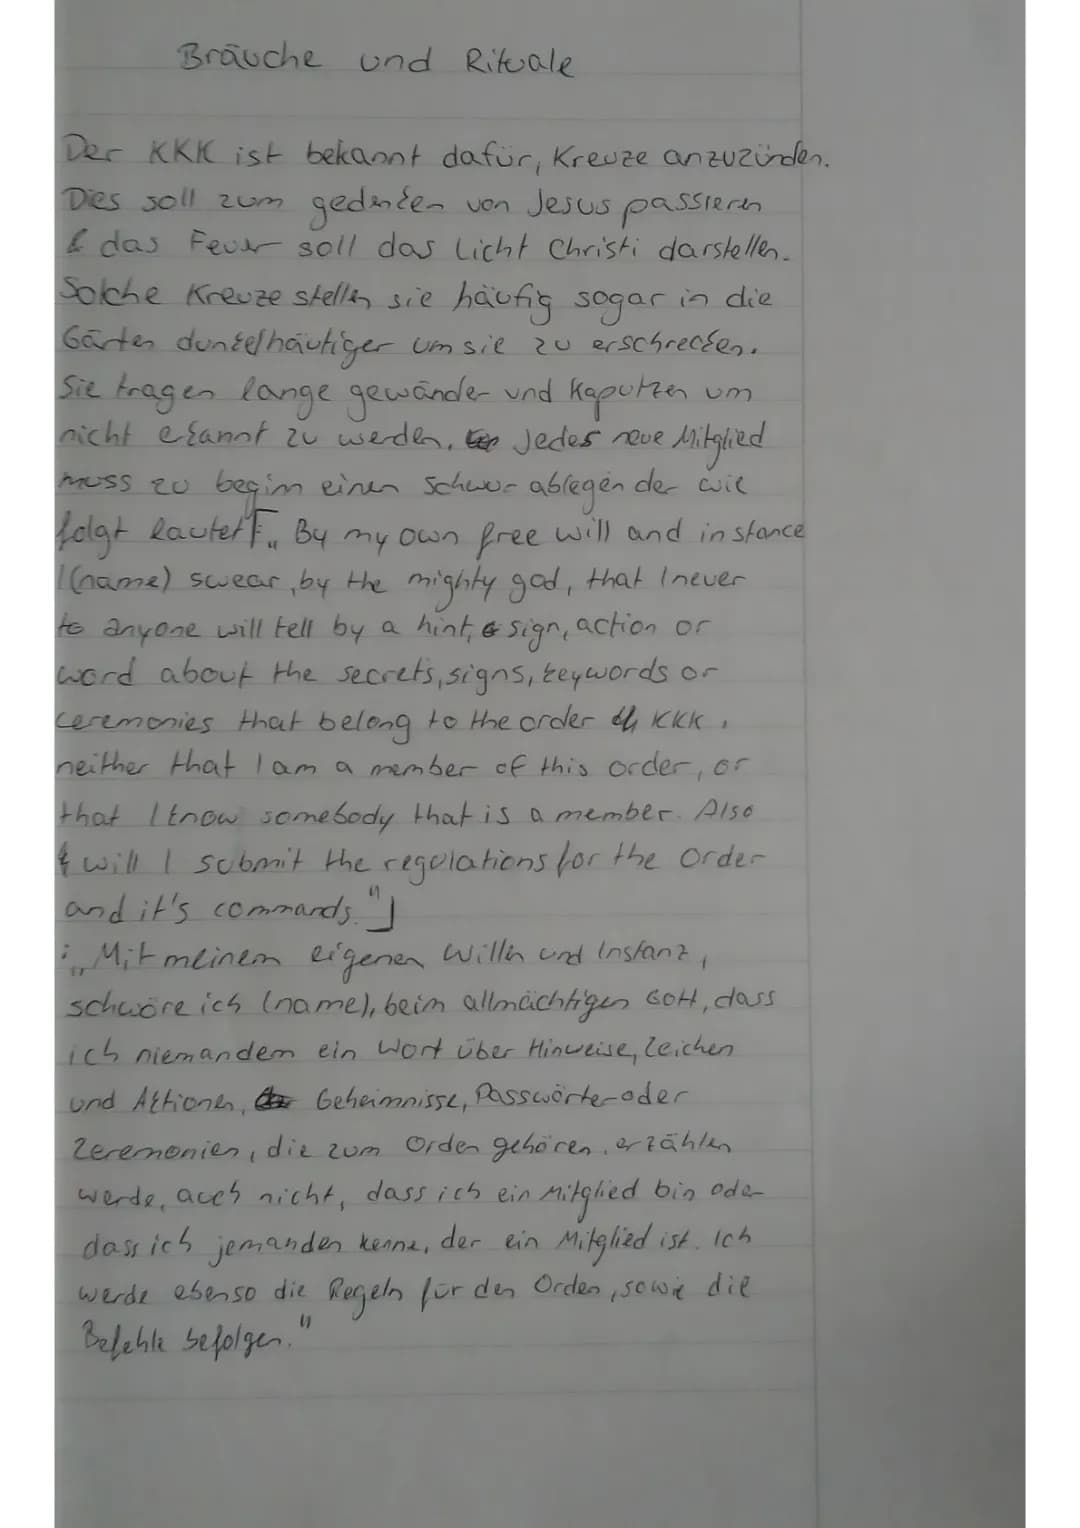 Bräuche und Rituale
Der KKK ist bekannt dafür, Kreuze anzuzünden.
Dies soll zum gedenken von Jesus passieren
& das Feuer soll das Licht Christi darstellen.
Solche Kreuze stellen sie häufig sogar in die
Gärten dunkelhäutiger um sie zu erschrecken.
Sie tragen lange gewänder und Kaputzen um
nicht erkannt zu werden. Jedes neue Mitglied
muss zu begin einen Schwur ablegen der wie
folgt lautet[: „By my own free will and instance
I (name) swear, by the mighty god, that I never
to anyone will tell by a hint, sign, action or
word about the secrets, signs, keywords or
ceremonies that belong to the order KKK,
neither that I am a member of this order, or
that I know somebody that is a member. Also
will I submit the regulations for the Order
and it's commands."]
: „Mit meinem eigenen Willen und Instanz,
schwöre ich (name), beim allmächtigen Gott, dass
ich niemandem ein Wort über Hinweise, Zeichen
und Aktionen, Geheimnisse, Passwörter oder
Zeremonien, die zum Orden gehören, erzählen
werde, auch nicht, dass ich ein Mitglied bin oder
dass ich jemanden kenne, der ein Mitglied ist. Ich
werde ebenso die Regeln für den Orden, sowie die
Befehle befolgen."